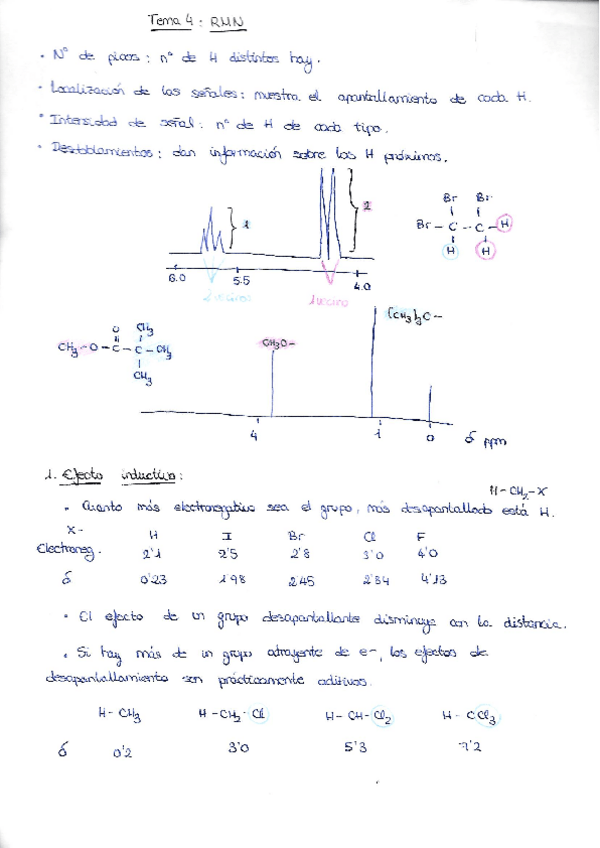 Tema 4: RMN
• Nº de picos: nº de H distintos hay.
• Localización de las señales: muestra el apantallamiento de cada H.
• Intensidad de señal: nº de H de cada tipo.
• Desdoblamientos: dan información sobre los H próximos.
1
2
6.0 5.5 4.0
2 vecinos 1 vecino
Br Br
Br - C - C - H
H H
CH3 - O - C - C - CH3
O CH3
CH3
CH3O-
(CH3)3C-
4 1 0 δ ppm
1. Efecto inductivo:
H-CH2-X
• Cuanto más electronegativo sea el grupo, más desapantallado está H.
X- H I Br Cl F
Electroneg. 2'1 2'5 2'8 3'0 4'0
δ 0'23 1'98 2'45 2'84 4'13
• El efecto de un grupo desapantallante disminuye con la distancia.
• Si hay más de un grupo atrayente de e-, los efectos de
desapantallamiento son prácticamente aditivos.
H-CH3 H-CH2-Cl H-CH-Cl2 H-CCl3
δ 0'2 3'0 5'3 7'2